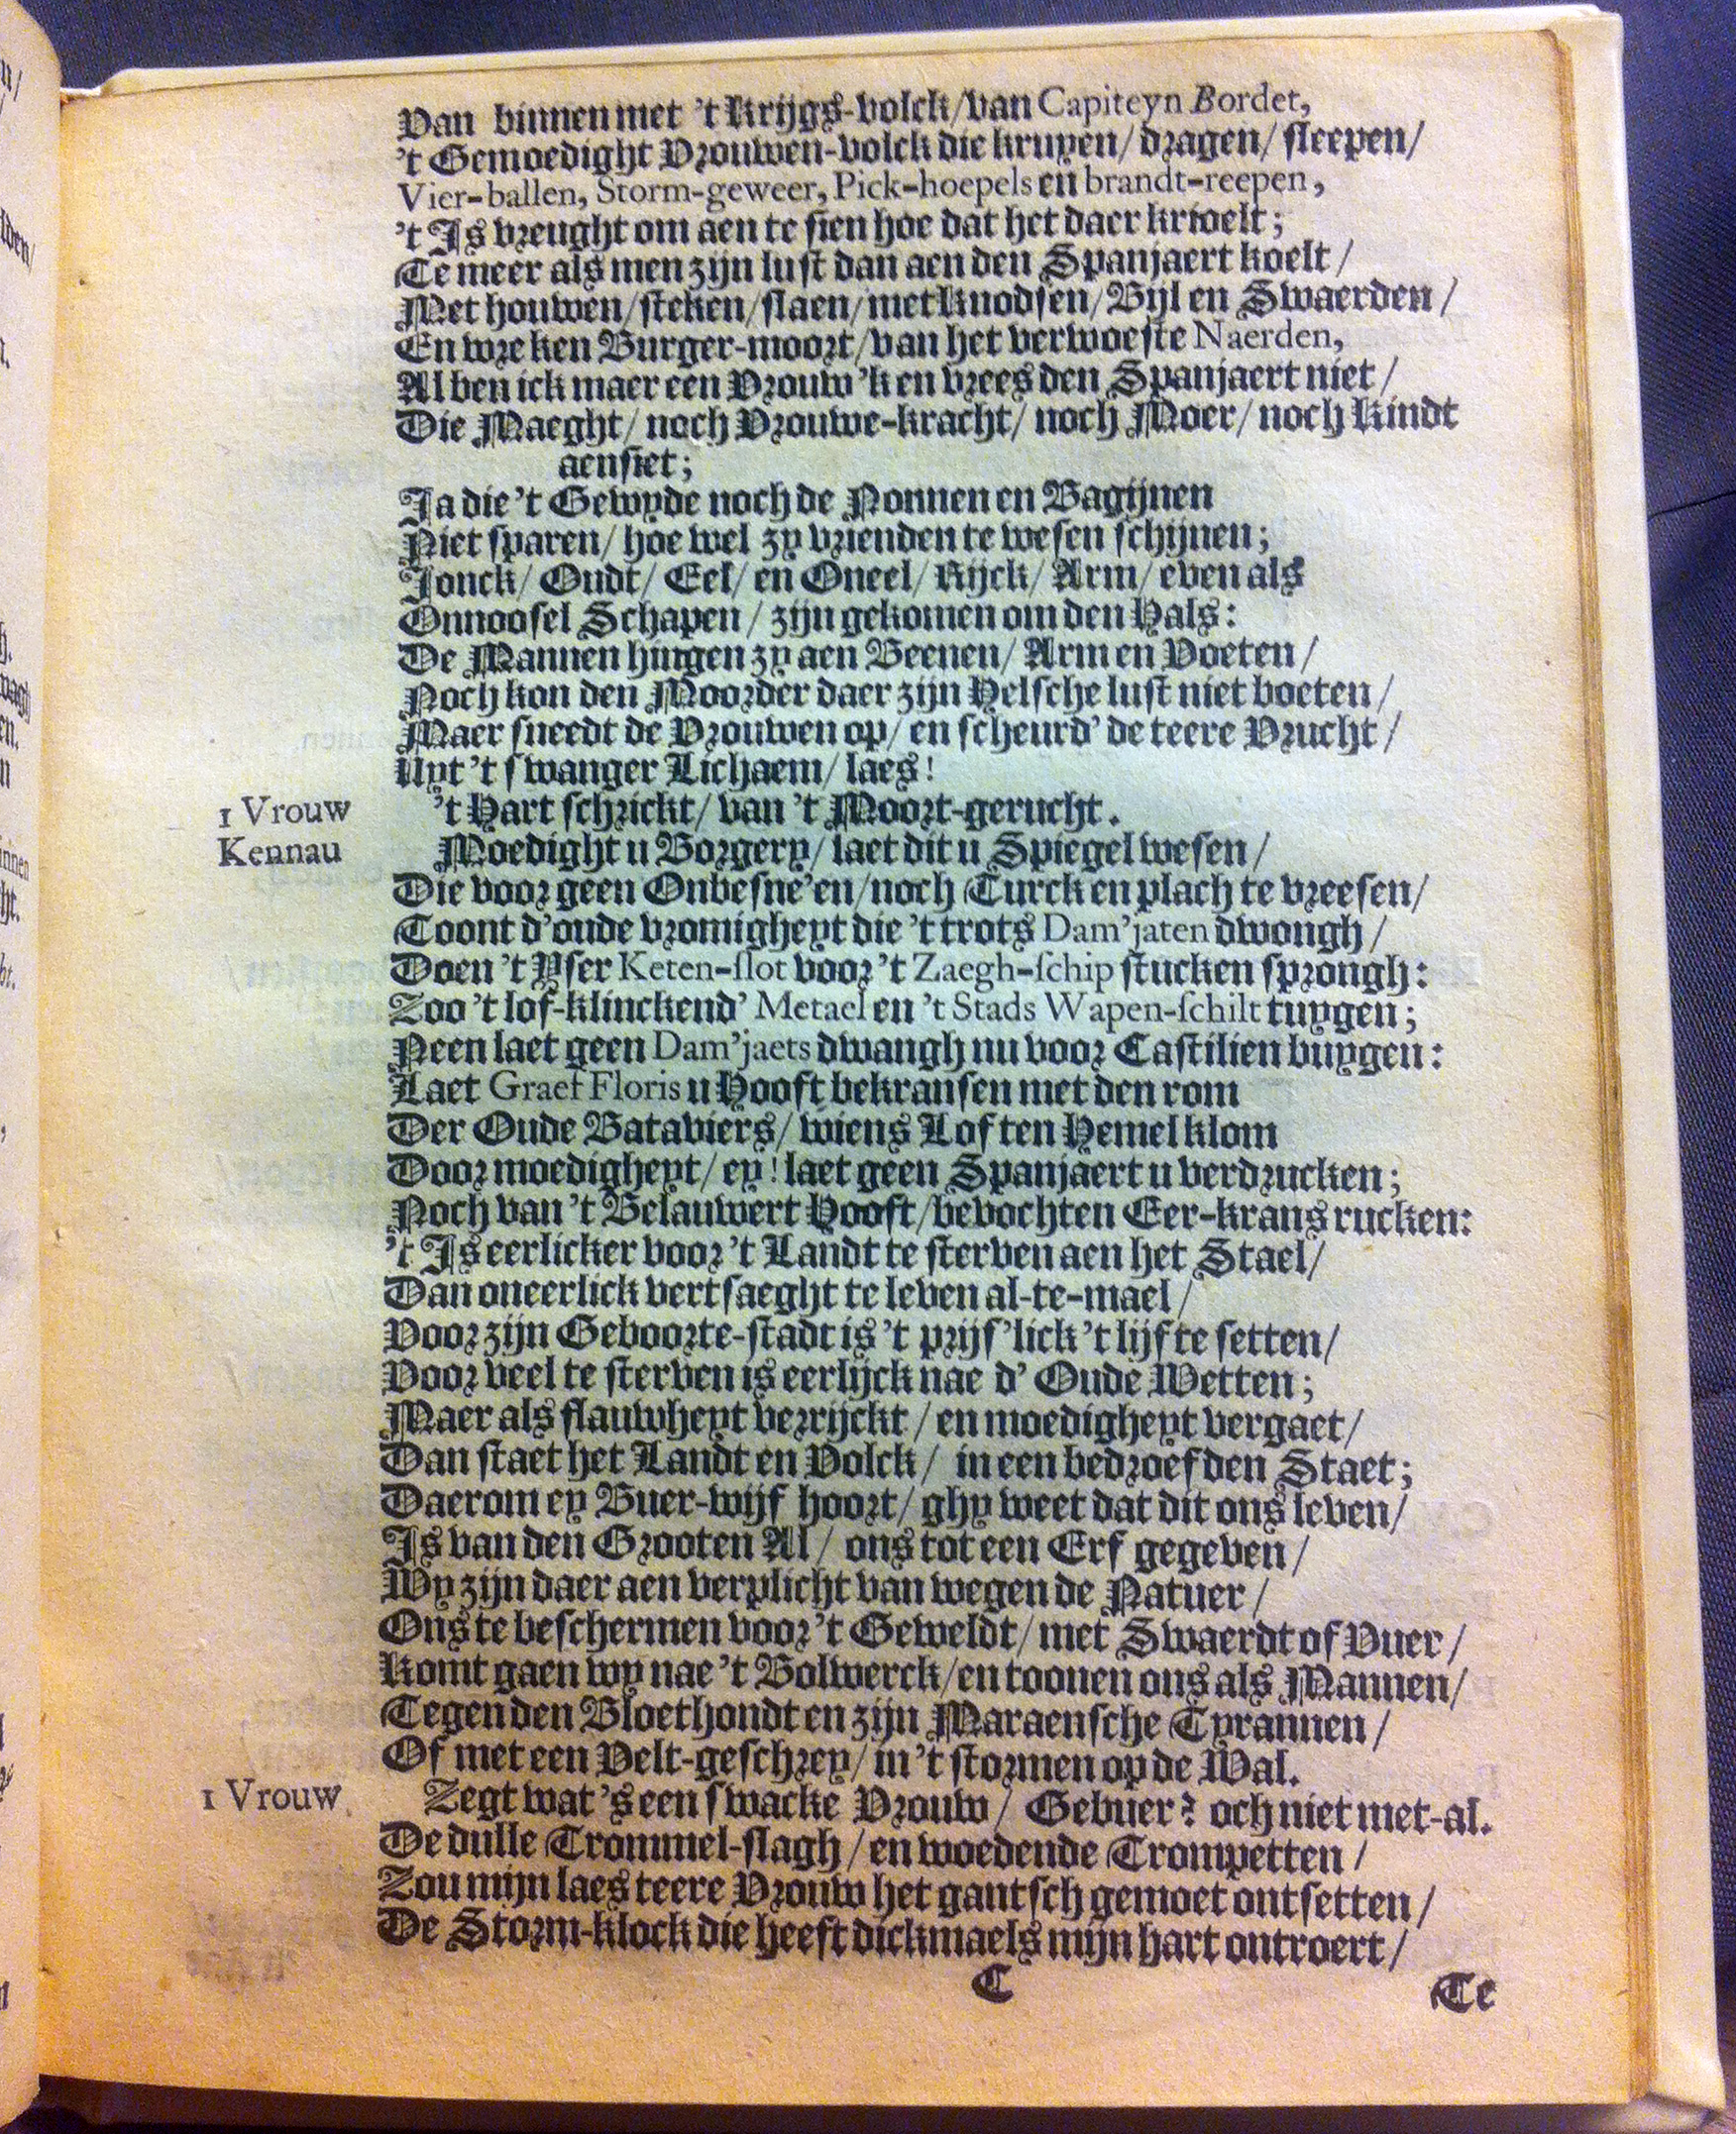 Van binnen met 't Krijgs-volck/van Capiteyn Bordet,
't Gemoedight Vrouwen-volck die kruyen/ dragen/ sleepen/
Vier-ballen, Storm-geweer, Pick-hoepels en brandt-reepen,
't Is vreught om aen te sien hoe dat het daer krioelt;
Te meer als men zijn lust dan aen den Spanjaert koelt/
Met houwen/steken/slaen/met Knodsen/Bijl en Swaerden/
En wreken Burger-moort/van het verwoeste Naerden,
Al ben ick maer een Vrouw 'k en vrees den Spanjaert niet/
Die Maeght/ noch Vrouwe-kracht/ noch Moer/ noch Kindt
aensiet;
Ja die 't Gewyde noch de Nonnen en Bagijnen
Niet sparen/ hoe wel zy vrienden te wesen schijnen;
Jonck/ Oudt/ Eel/ en Oneel/ Rijck/ Arm/ even als
Onnoosel Schapen/ zijn gekomen om den Hals:
De Mannen hingen zy aen Beenen/ Arm en Voeten/
Noch kon den Moorder daer zijn Helsche lust niet boeten/
Maer sneedt de Vrouwen op/ en scheurd' de teere Vrucht/
Uyt 't swanger Lichaem/ laes!
1 Vrouw 't Hart schrickt/ van 't Moort-gerucht.
Kennau Moedight u Borgery/ laet dit u Spiegel wesen/
Die voor geen Onbesne'en/noch Turck en plach te vreesen/
Toont d'oude vromigheyt die 't trots Dam'jaten dwongh/
Doen 't Yser Keten-slot voor 't Zaegh-schip stucken sprongh:
Zoo 't lof-klinckend' Metael en 't Stads Wapen-schilt tuygen;
Neen laet geen Dam'jaets dwangh nu voor Castilien buygen:
Laet Graef Floris u Hooft bekransen met den rom
Der Oude Bataviers/ wiens Lof ten Hemel klom
Door moedigheyt/ ey! laet geen Spanjaert u verdrucken;
Noch van 't Belauwert Hooft/bevochten Eer-krans rucken:
't Is eerlicker voor 't Landt te sterven aen het Stael/
Dan oneerlick vertsaeght te leven al-te-mael/
Voor zijn Geboorte-stadt is 't prijs'lick 't lijf te setten/
Voor veel te sterven is eerlijck nae d' Oude Wetten;
Maer als flauwheyt verrijckt/ en moedigheyt vergaet/
Dan staet het Landt en Volck/ in een bedroefden Staet;
Daerom ey Buer-wijf hoort/ ghy weet dat dit ons leven/
Is van den Grooten Al/ ons tot een Erf gegeven/
Wy zijn daer aen verplicht van wegen de Natuer/
Ons te beschermen voor 't Geweldt/ met Swaerdt of Vuer/
Komt gaen wy nae 't Bolwerck/en toonen ons als Mannen/
Tegen den Bloethondt en zijn Maraensche Tyrannen/
Of met een Velt-geschrey/ in 't stormen op de Wal.
1 Vrouw Zegt wat 's een swacke Vrouw/ Gebuer? och niet met-al.
De dulle Trommel-slagh/en woedende Trompetten/
Zou mijn laes teere Vrouw het gantsch gemoet ontsetten/
De Storm-klock die heeft dickmaels mijn hart ontroert/
C Te